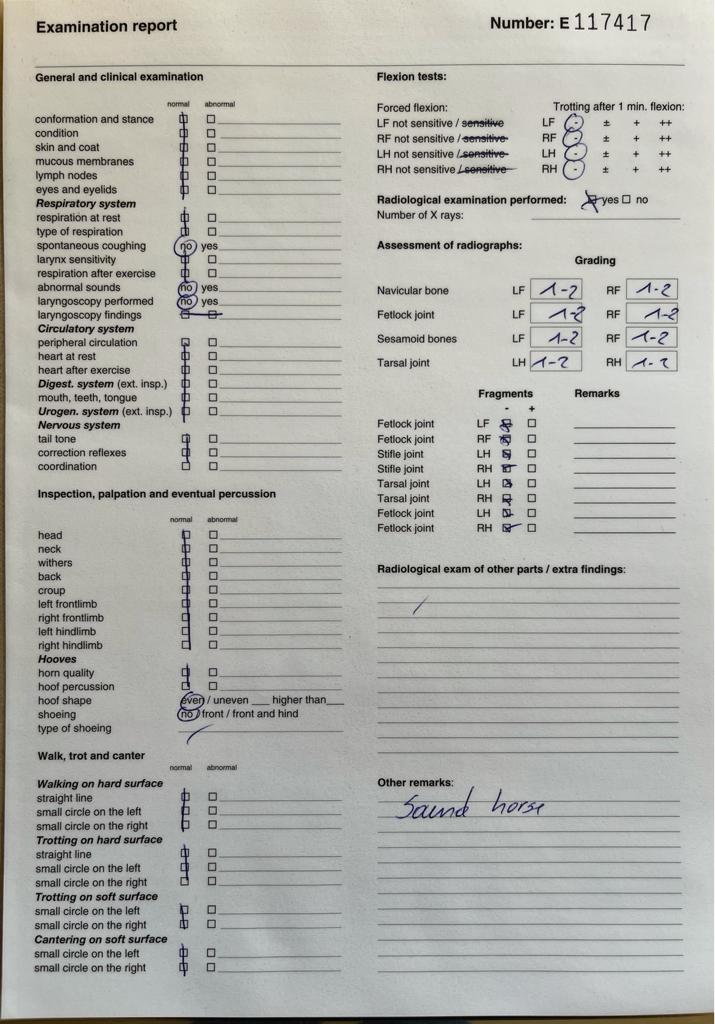 Examination report
Number: E 117417
General and clinical examination
normal abnormal
conformation and stance
condition
skin and coat
mucous membranes
lymph nodes
eyes and eyelids
Respiratory system
respiration at rest
type of respiration
spontaneous coughing no yes
larynx sensitivity
respiration after exercise
abnormal sounds no yes
laryngoscopy performed no yes
laryngoscopy findings
Circulatory system
peripheral circulation
heart at rest
heart after exercise
Digest. system (ext. insp.)
mouth, teeth, tongue
Urogen. system (ext. insp.)
Nervous system
tail tone
correction reflexes
coordination
Inspection, palpation and eventual percussion
normal abnormal
head
neck
withers
back
croup
left frontlimb
right frontlimb
left hindlimb
right hindlimb
Hooves
horn quality
hoof percussion
hoof shape even / uneven ___ higher than___
shoeing no / front / front and hind
type of shoeing
Walk, trot and canter
normal abnormal
Walking on hard surface
straight line
small circle on the left
small circle on the right
Trotting on hard surface
straight line
small circle on the left
small circle on the right
Trotting on soft surface
small circle on the left
small circle on the right
Cantering on soft surface
small circle on the left
small circle on the right
Flexion tests:
Forced flexion: Trotting after 1 min. flexion:
LF not sensitive / sensitive LF - ± + ++
RF not sensitive / sensitive RF - ± + ++
LH not sensitive / sensitive LH - ± + ++
RH not sensitive / sensitive RH - ± + ++
Radiological examination performed: yes no
Number of X rays:
Assessment of radiographs:
Grading
Navicular bone LF 1-2 RF 1-2
Fetlock joint LF 1-2 RF 1-2
Sesamoid bones LF 1-2 RF 1-2
Tarsal joint LH 1-2 RH 1-2
Fragments Remarks
- +
Fetlock joint LF
Fetlock joint RF
Stifle joint LH
Stifle joint RH
Tarsal joint LH
Tarsal joint RH
Fetlock joint LH
Fetlock joint RH
Radiological exam of other parts / extra findings:
/
Other remarks:
Sound horse